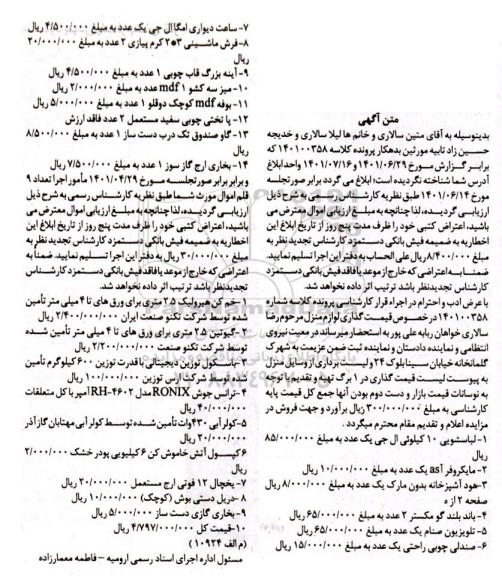 متن آگهی
بدینوسیله به آقای متین سالاری و خانم ها لیلا سالاری و خدیجه
حسین زاد تابیه مورثین بدهکار پرونده کلاسه ۱۴۰۱۰۰۳۵۸ که
برابر گزارش مورخ ۱۴۰۱/۰۶/۲۹ و ۱۴۰۱/۰۷/۱۶ واحد ابلاغ
آدرس شما شناخته نگردیده است؛ ابلاغ می گردد برابر صورتجلسه
مورخ ۱۴۰۱/۰۶/۱۲ طبق نظریه کارشناس رسمی به شرح ذیل
ارزیابی گردیده، لذا چنانچه به مبلغ ارزیابی اموال معترض می
باشید، اعتراض کتبی خود را ظرف مدت پنج روز از تاریخ ابلاغ این
اخطاریه به ضمیمه فیش بانکی دستمزد کارشناس تجدید نظر به
مبلغ ۸/۴۰۰/۰۰۰ ریال علی الحساب به دفتر این اجرا تسلیم نمایید.
ضمناً به اعتراضی که خارج از موعد یا فاقد فیش بانکی دستمزد
کارشناس تجدیدنظر باشد ترتیب اثر داده نخواهد شد.
با عرض ادب و احترام در اجراء قرار کارشناسی پرونده کلاسه شماره
۱۴۰۱۰۰۳۵۸ درخصوص قیمت گذاری لوازم منزل مرحوم رضا
سالاری خواهان ربابه علی پور به استحضار میرساند در معیت نیروی
انتظامی و نماینده دادستان و نماینده ثبت ضمن عزیمت به شهرک
گلمانخانه خیابان سینا بلوک ۲۴ و لیست برداری از وسایل منزل
به پیوست لیست قیمت گذاری در ۱ برگ تهیه و تقدیم با توجه
به نوسانات قیمت بازار و دست دوم بودن آنها جمع کل قیمت پایه
کارشناسی به مبلغ ۳۰۰/۰۰۰/۰۰۰ ریال برآورد و جهت فروش در
مزایده اعلام و تقدیم مقام محترم میگردد.
۱- لباسشویی ۱۰ کیلوئی ال جی یک عدد به مبلغ ۸۵/۰۰۰/۰۰۰
ریال
۲- مایکروفر آsa یک عدد به مبلغ ۱۰/۰۰۰/۰۰۰ ریال
۳-هود آشپزخانه بدون مارک یک عدد به مبلغ ۸/۰۰۰/۰۰۰ ریال
صفحه ۲ از ه
۴- باند بلند گو مکستر ۲ عدد به مبلغ ۶۵/۰۰۰/۰۰۰ ریال
۵- تلویزیون صنام یک عدد به مبلغ ۶۵/۰۰۰/۰۰۰ ریال
۶- صندلی چوبی راحتی یک عدد به مبلغ ۱۵/۰۰۰/۰۰۰ ریال
۷- ساعت دیواری امگا ال جی یک عدد به مبلغ ۴/۵۰۰/۰۰۰ ریال
۸-فرش ماشینی ۳*۲ کرم پیازی ۲ عدد به مبلغ ۲۰/۰۰۰/۰۰۰
ریال
۹- آینه بزرگ قاب چوبی ۱ عدد به مبلغ ۴/۵۰۰/۰۰۰ ریال
۱۰-میز سه کشو mdf ۱ عدد به مبلغ ۲/۰۰۰/۰۰۰ ریال
۱۱- بوفه mdf کوچک دوقلو ۱ عدد به مبلغ ۵/۰۰۰/۰۰۰ ریال
۱۲- پا تختی چوبی سفید مستعمل ۲ عدد فاقد ارزش
۱۳- گاو صندوق تک درب دست ساز ۱ عدد به مبلغ ۸/۵۰۰/۰۰۰
ریال
۱۴- بخاری ارج گاز سوز ۱ عدد به مبلغ ۷/۵۰۰/۰۰۰ ریال
و برابر برابر صورتجلسه مورخ ۱۴۰۱/۰۴/۲۹ مأمور اجرا تعداد ۹
قلم اموال مورث شما طبق نظریه کارشناس رسمی به شرح ذیل
ارزیابی گردیده، لذا چنانچه به مبلغ ارزیابی اموال معترض می
باشید، اعتراض کتبی خود را ظرف مدت پنج روز از تاریخ ابلاغ این
اخطاریه به ضمیمه فیش بانکی دستمزد کارشناس تجدید نظر به
مبلغ ۳۰/۰۰۰/۰۰۰ ریال به دفتر این اجرا تسلیم نمایید. ضمناً به
اعتراضی که خارج از موعد یا فاقد فیش بانکی دستمزد کارشناس
تجدیدنظر باشد ترتیب اثر داده نخواهد شد.
۱- خم کن هیرولیک ۲.۵ متری برای ورق های تا ۴ میلی متر تأمین
شده توسط شرکت تکنو صنعت ایران ۲/۴۰۰/۰۰۰/۰۰۰ ریال
۲-گیوتین ۲.۵ متری برای ورق های تا ۴ میلی متر تأمین شده
توسط شرکت تکنو صنعت ۲/۲۰۰/۰۰۰/۰۰۰ ریال
۳- باسکول توزین دیجیتالی با قدرت توزین ۶۰۰ کیلوگرم تأمین
شده توسط شرکت ارس توزین ۱۰۰/۰۰۰/۰۰۰ ریال
۴-ترانس جوش RONIX مدل RH-۴۶۰۲ آمپر با کل متعلقات
۴۰/۰۰۰/۰۰۰ ریال
۵-کولر آبی ۴۳۰وات تأمین شده توسط کولر آبی مهتابان گاز آذر
۲۰/۰۰۰/۰۰۰ ریال
۶کپسول آتش خاموش کن ۶ کیلویی پودر خشک ۲/۰۰۰/۰۰۰
ریال
۷- یخچال ۱۲ فوتی ارج مستعمل ۲۰/۰۰۰/۰۰۰ ریال
۸-دریل دستی بوش (کوچک) ۱۰/۰۰۰/۰۰۰ ریال
۹- بخاری گازی دست ساز ۵/۰۰۰/۰۰۰ ریال
۱۰-قیمت کل ۴/۷۹۷/۰۰۰/۰۰۰ ریال
(م الف ۱۰۹۲۴)
مسئول اداره اجرای اسناد رسمی ارومیه – فاطمه معمارزاده